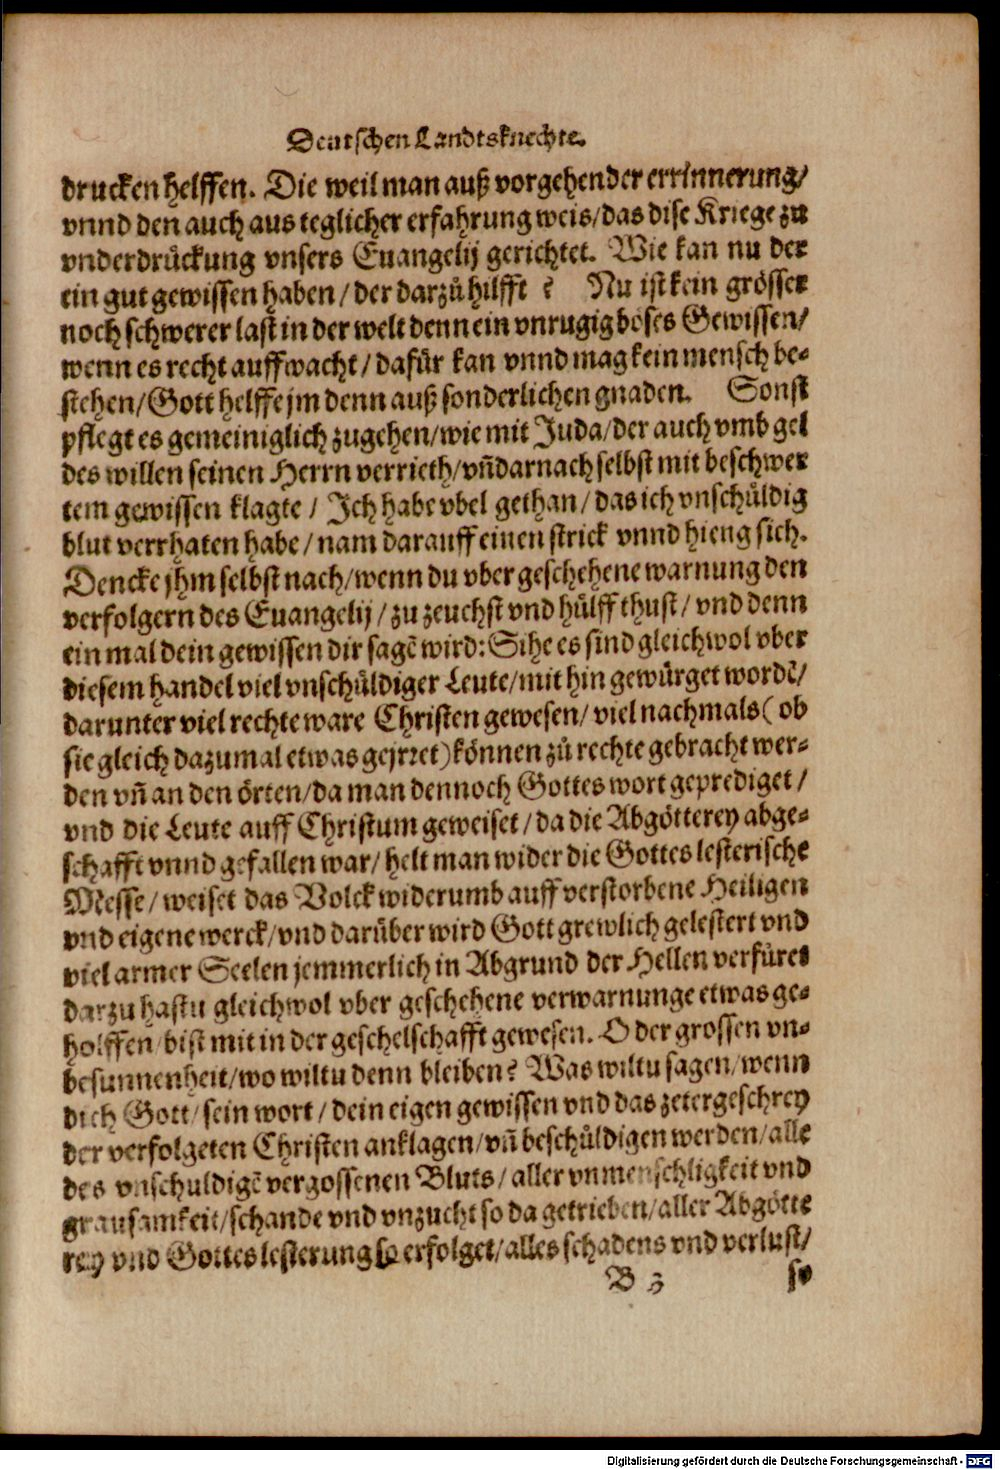 Deutschen Landtsknechte.
drucken helffen. Die weil man auß vorgehender errinnerung/
vnnd den auch aus teglicher erfahrung weis/das dise Kriege zu
vnderdrückung vnsers Euangelij gerichtet. Wie kan nu der
ein gut gewissen haben/der darzů hilfft? Nu ist kein grösser
noch schwerer last in der welt denn ein vnrugig böses Gewissen/
wenn es recht auffwacht/dafür kan vnnd mag kein mensch be-
stehen/Gott helffe jm denn auß sonderlichen gnaden. Sonst
pflegt es gemeiniglich zugehen/wie mit Juda/der auch vmb gel
des willen seinen Herrn verrieth/vñ darnach selbst mit beschwer
tem gewissen klagte/Ich habe vbel gethan/das ich vnschüldig
blut verrhaten habe/nam darauff einen strick vnnd hieng sich.
Dencke jhm selbst nach/wenn du vber geschehene warnung den
verfolgern des Euangelij/zu zeuchst vnd hülff thust/vnd denn
ein mal dein gewissen dir sagẽ wird: Sihe es sind gleichwol vber
diesem handel viel vnschüldiger Leute/mit hin gewürget wordẽ/
darunter viel rechte ware Christen gewesen/viel nachmals (ob
sie gleich dazumal etwas gejrret) können zů rechte gebracht wer-
den vñ an den örten/da man dennoch Gottes wort geprediget/
vnd die Leute auff Christum geweiset/da die Abgötterey abge-
schafft vnnd gefallen war/helt man wider die Gotteslesterische
Messe/weiset das Volck widerumb auff verstorbene Heiligen
vnd eigene werck/vnd darüber wird Gott grewlich gelestert vnd
viel armer Seelen jemmerlich in Abgrund der Hellen verfüret
darzu hastu gleichwol vber geschehene verwarnunge etwas ge-
holffen/bist mit in der geschelschafft gewesen. O der grossen vn-
besunnenheit/wo wiltu denn bleiben? Was wiltu sagen/wenn
dich Gott/sein wort/dein eigen gewissen vnd das zetergeschrey
der verfolgeten Christen anklagen/vñ beschüldigen werden/alle
des vnschuldigẽ vergossenen Bluts/aller vnmenschligkeit vnd
grausamkeit/schande vnd vnzucht so da getrieben/aller Abgötte
rey vnd Gotteslesterung so erfolget/alles schadens vnd verlust/
B 3 so
Digitalisierung gefördert durch die Deutsche Forschungsgemeinschaft - DFG